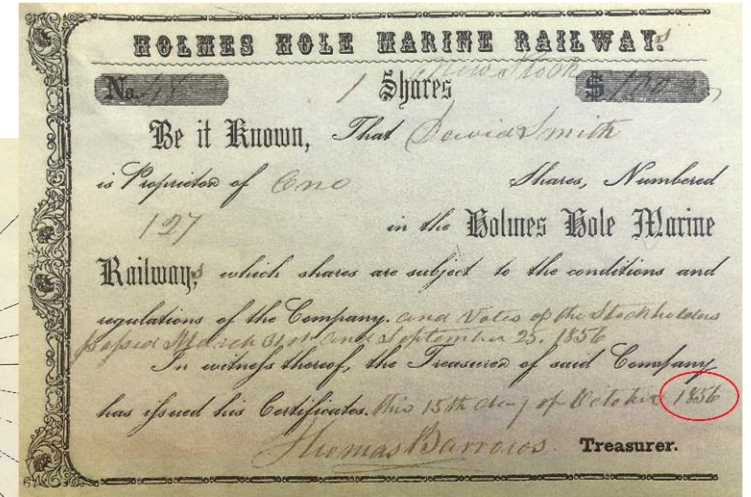 HOLMES HOLE MARINE RAILWAY.s
New Stock
No. 1 Shares $ 100
Be it Known, That David Smith
is Proprietor of One Shares, Numbered
127 in the Holmes Hole Marine
Railways, which shares are subject to the conditions and
regulations of the Company. and Votes of the Stockholders
passed March 31st and September 25. 1856
In witness thereof, the Treasurer of said Company
has issued his Certificates. this 15th day of October 1856
Thomas Barrows. Treasurer.